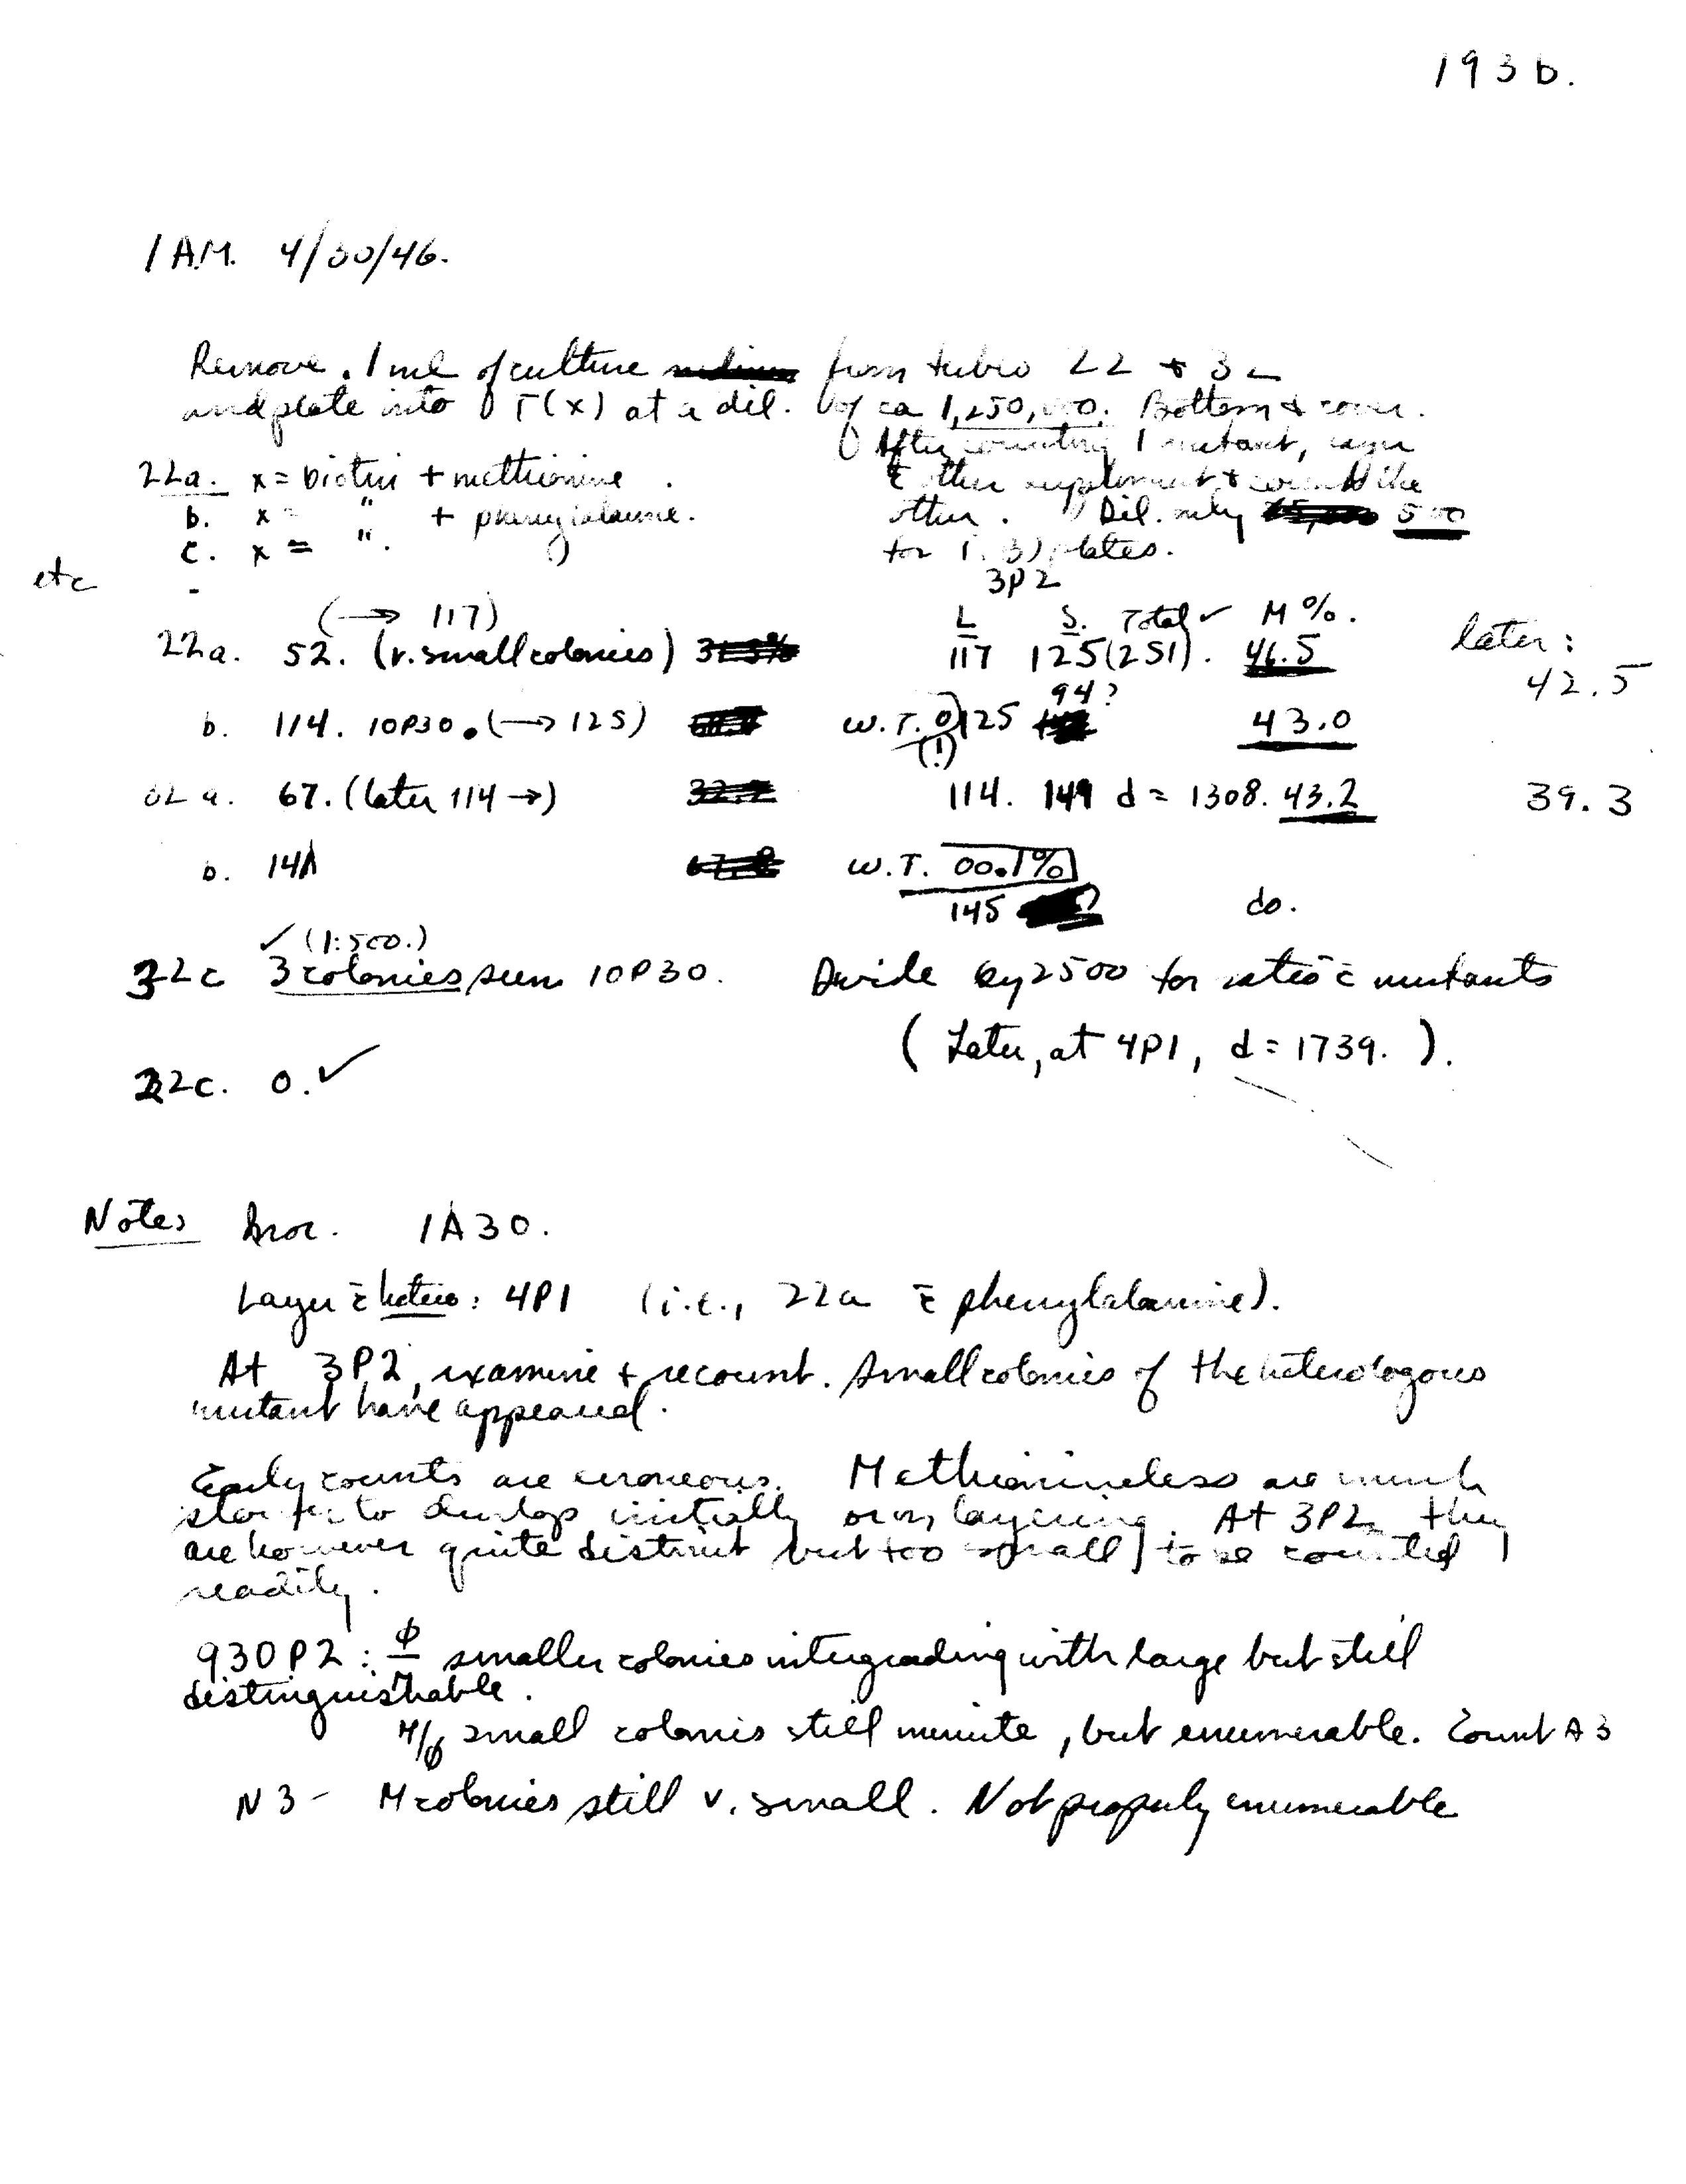 193b.
1 A.M. 4/30/46.
Remove .1 ml of culture from tubes 22 + 32
and plate into T(x) at a dil. of ca 1,250,000. Bottom & cover.
After counting 1 mutant, layer
22a. x = biotin + methionine .
c̄ other supplement + count the
b. x = " + phenylalanine.
other. Dil. only 500
c. x = ".
for plates.
etc
3P2
(→ 117)
L S. Total ✓ M %.
later:
22a. 52. (v. small colonies)
117 125 (251). 46.5
42.5
94?
b. 114. 10P30. (→ 125)
W.T. 0 125
43.0
(!)
32 a. 67. (later 114 →)
114. 149 d = 1308. 43.2
39.3
b. 14
W.T. 00.1%
145
do.
✓ (1:500.)
32c 3 colonies seen 10P30.
Divide by 2500 for ratio c̄ mutants
(Later, at 4P1, d = 1739. ).
22c. 0. ✓
Notes Inoc. 1A30.
Layer c̄ hetero: 4P1 (i.e., 22a c̄ phenylalanine).
At 3P2, examine + recount. Small colonies of the heterologous
mutant have appeared.
Early counts are erroneous. Methionineless are much
slower to develop initially on layering. At 3P2 they
are however quite distinct but too small to be counted
readily.
930P2: φ/M smaller colonies intergrading with large but still
distinguishable.
M/φ small colonies still minute, but enumerable. Count A3
N3 - M colonies still v. small. Not properly enumerable